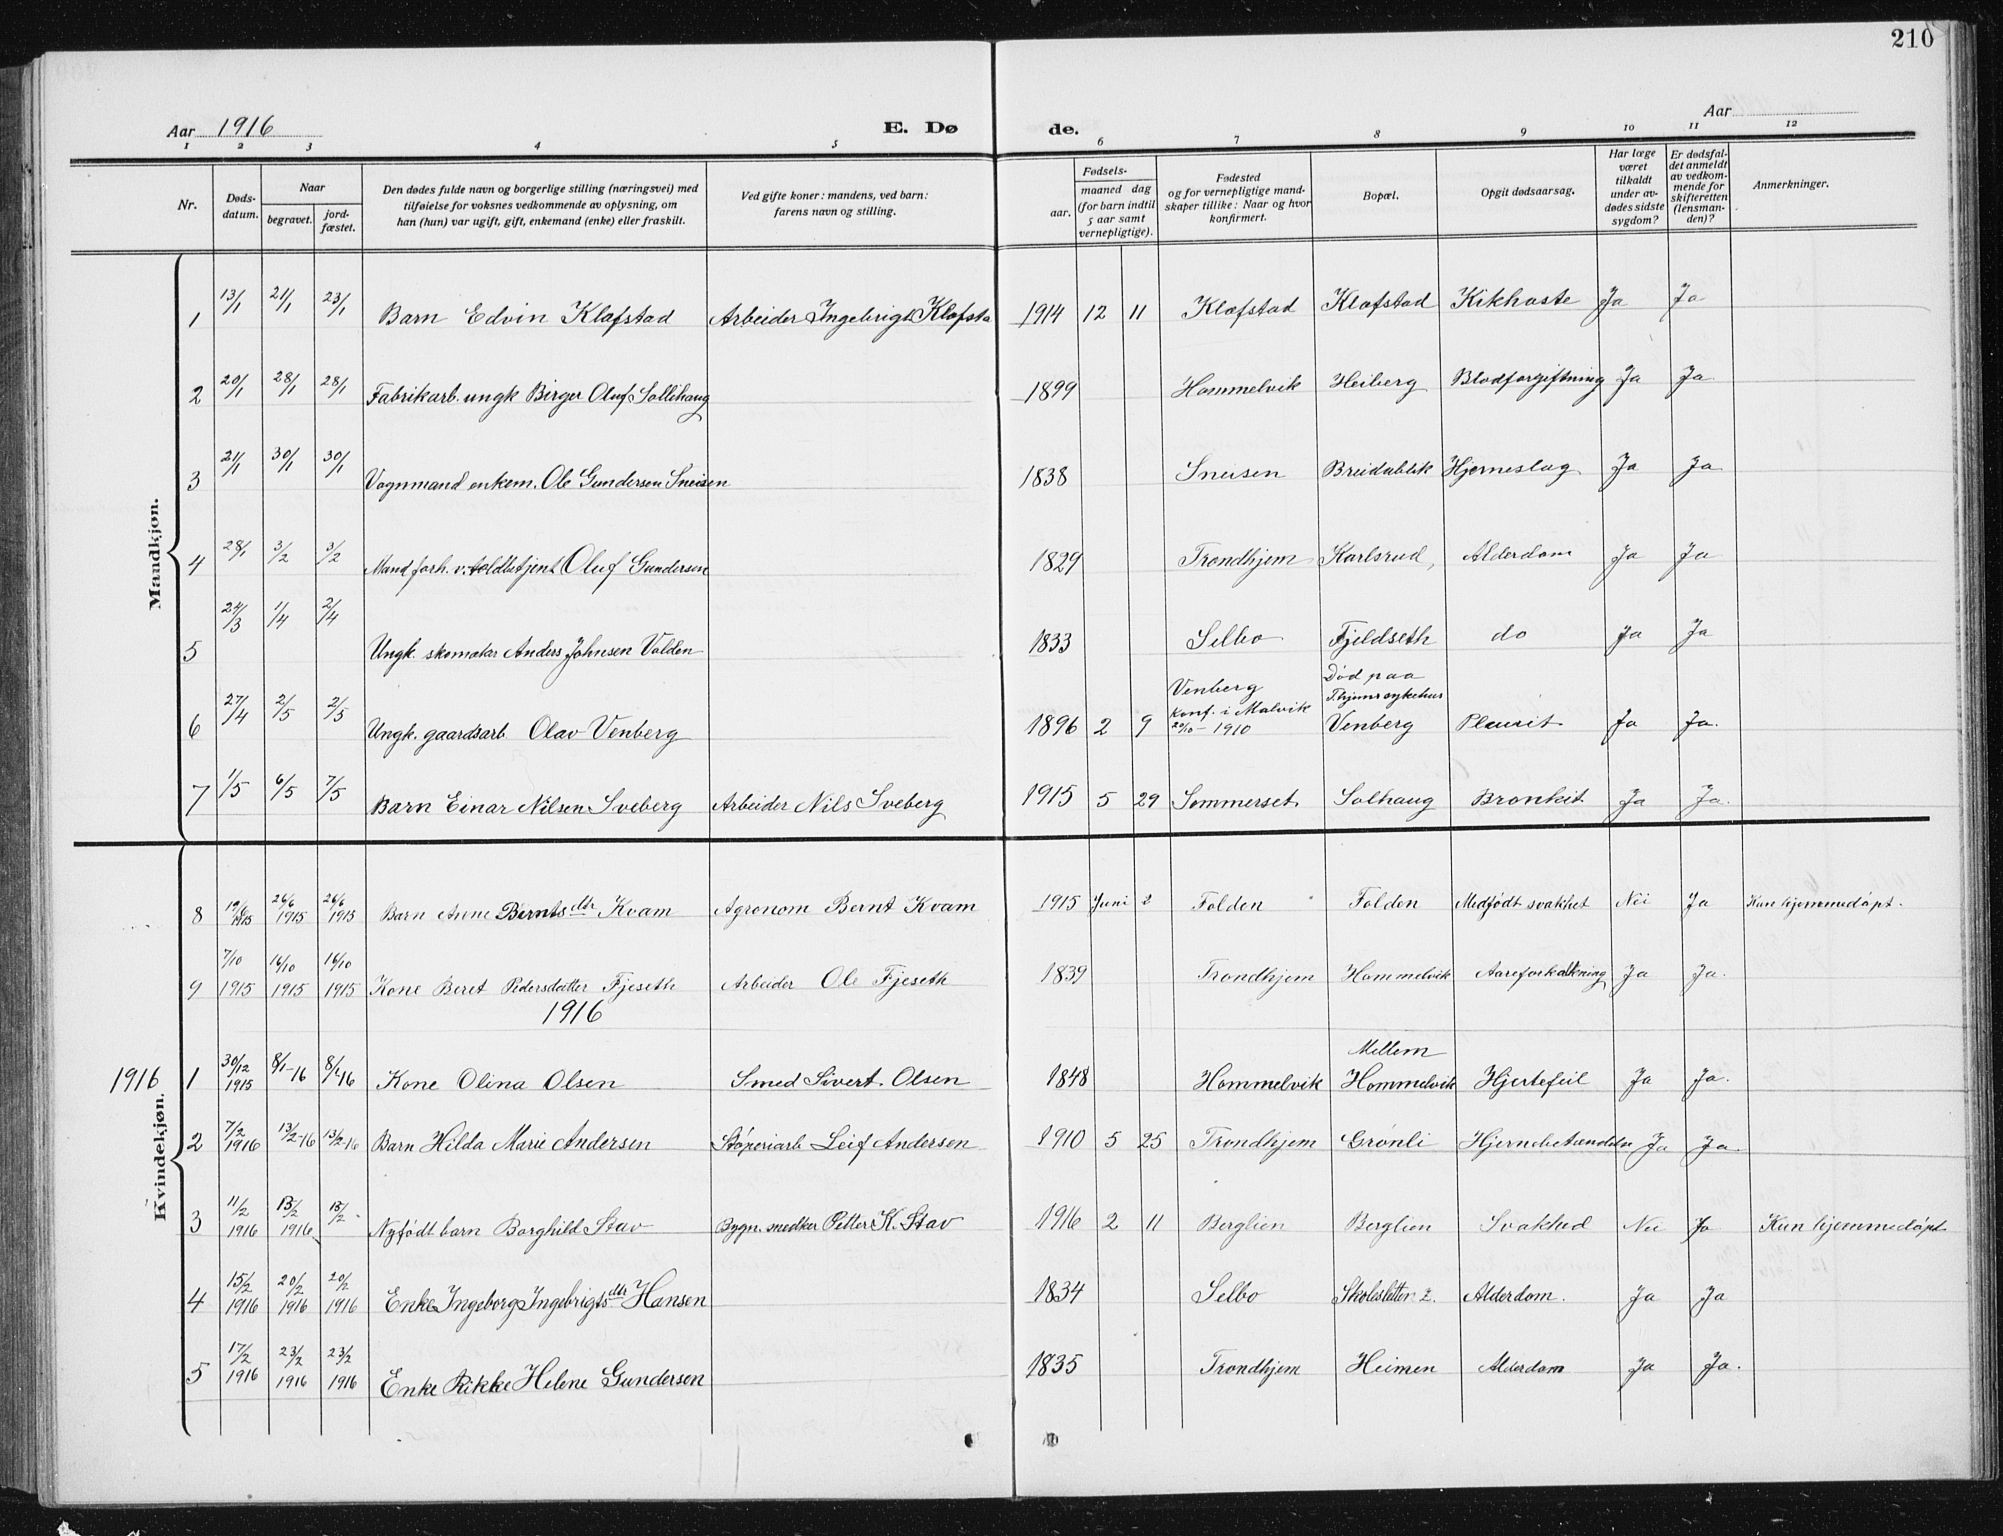 210
Aar 1916
E. Dø
de.
Aar
1 2 3 4 5 6 7 8 9 10 11 12
Nr.
Døds-
datum.
Naar
begravet.
jord-
fæstet.
Den dødes fulde navn og borgerlige stilling (næringsvei) med
tilføielse for voksnes vedkommende av oplysning, om
han (hun) var ugift, gift, enkemand (enke) eller fraskilt.
Ved gifte koner: mandens, ved barn:
farens navn og stilling.
Fødsels-
aar.
maaned dag
(for barn indtil
5 aar samt
vernepligtige).
Fødested
og for vernepligtige mand-
skaper tillike: Naar og hvor
konfirmert.
Bopæl.
Opgit dødsaarsag.
Har læge
været
tilkaldt
under av-
dødes sidste
sygdom?
Er dødsfal-
det anmeldt
av vedkom-
mende for
skifteretten
(lensman-
den)?
Anmerkninger.
Mandkjøn.
1 13/1 21/1 23/1 Barn Edvin Klafstad Arbeider Ingebrigt Klafsta 1914 12 11 Klæfstad Klafstad Kikhoste Ja Ja
2 20/1 28/1 28/1 Fabrikarb. ungk Birger Oluf Sollihaug 1899 Hommelvik Heiberg Blodforgiftning Ja Ja
3 21/1 30/1 30/1 Vognmand enkem. Ole Gundersen Sneisen 1838 Sneisen Breidablik Hjerneslag Ja Ja
4 28/1 3/2 3/2 Mand forh. v. toldbetjent Oluf Gundersen 1829 Trondhjem Karlsrud, Alderdom Ja Ja
5 24/3 1/4 2/4 Ungk. skomaker Anders Johnsen Volden 1833 Selbo Fjeldseth do Ja Ja
6 27/4 2/5 2/5 Ungk. gaardsarb. Olav Venberg 1896 2 9 Venberg
Konf. i Malvik
20/10 - 1910 Død paa
T.hjems sykehus
Venberg Pleurit Ja Ja.
7 1/5 6/5 7/5 Barn Einar Nilsen Sveberg Arbeider Nils Sveberg 1915 5 29 Sommerset Solhaug Bronkit Ja Ja.
Kvindekjøn.
8 19/6 1915 26/6 1915 26/6 1915 Barn Anne Berntsdtr Kvam Agronom Bernt Kvam 1915 Juni 2 Folden Folden Medfødt svakhet Nei Ja Kun hjemmedøpt.
9 7/10 1915 16/10 1915 16/10 1915 Kone Beret Pedersdatter Fjeseth Arbeider Ole Fjeseth 1839 Trondhjem Hommelvik Aareforkalkning Ja Ja.
1916
1916 1 30/12 1915 8/1-16 8/1-16 Kone Olina Olsen Smed Sivert Olsen 1848 Hommelvik Mellem
Hommelvik Hjertefeil Ja Ja.
2 7/2 1916 13/2-16 13/2-16 Barn Hilda Marie Andersen Støperiarb Leif Andersen 1910 5 25 Trondhjem Grønli Hjernebetændelse Ja Ja.
3 11/2 1916 13/2 1916 18/2 Nyfødt barn Borghild Stav Bygn. snedker Petter K. Stav 1916 2 11 Berglien Berglien Svakhed Nei Ja Kun hjemmedøpt
4 15/2 1916 20/2 1916 20/2 1916 Enke Ingeborg Ingebrigtsdtr Hansen 1834 Selbo Skolesletten 2. Alderdom. Ja Ja
5 17/2 1916 23/2 1916 23/2 1916 Enke Rikke Helene Gundersen 1835 Trondhjem Heimen Alderdom Ja Ja.